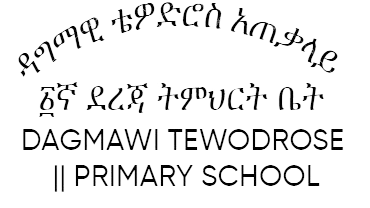 ዳግማዊ ቴዎድሮስ አጠቃላይ
፩ኛ ደረጃ ትምህርት ቤት
DAGMAWI TEWODROSE
|| PRIMARY SCHOOL